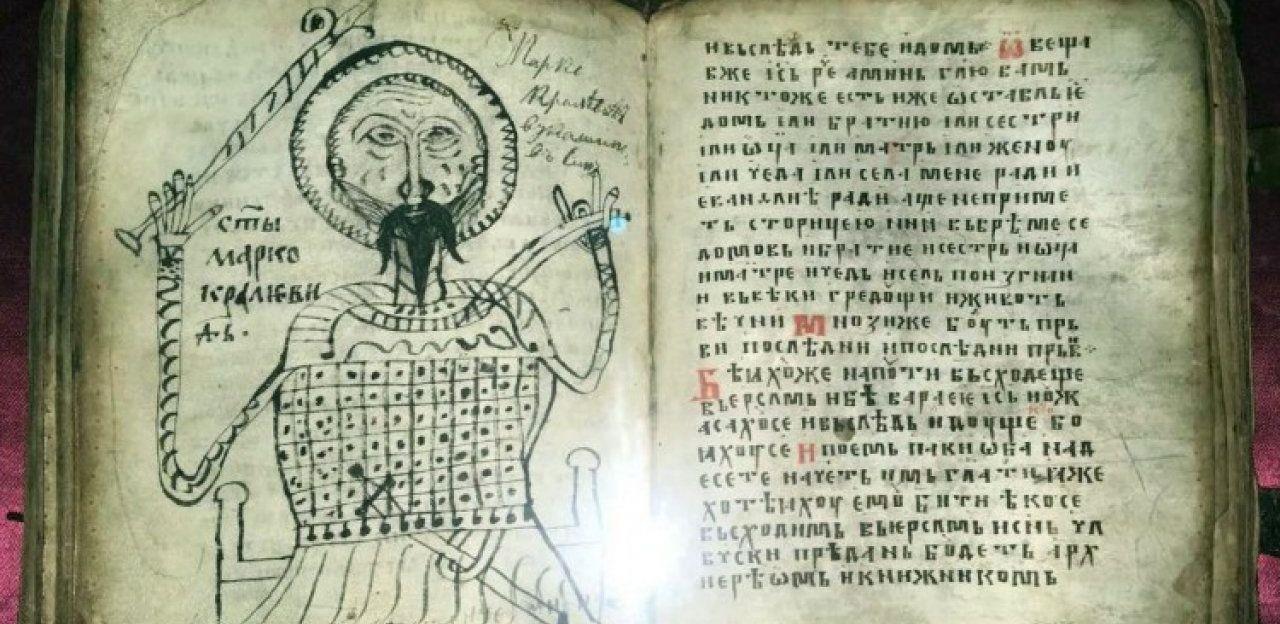 Марко
стты
марко
кралеви
и вьслѣдь тебе идомь Ѿвеща
вже ісь рѣ аминь глю вамь
никтоже есть иже ѡставль
домь или братию или сестри
или ѡца или матрь или женоу
или чеда или села мене ради и
еванлиѣ ради аще не приме
ть сторицею нин вь врѣме се
домовь и братие и сестрь и ѡца
и матре и чедь и сель по изгнан
и вь вѣки гредощи и животь
вѣчни Мнози же боуть прь
ви последни и последни прьв
Бѣихоже на поти вьсходеще
вь ерсамь и бѣ варaею ісь и оуж
асахосе и вьслѣдь идоуще бо
иахоусе И поемь паки ѡба над
есете начеть имь глати иаже
хотѣихоу емоу бити ѣко се
вьсходимь вь иерсамь и снь чл
вчски прѣдань бодеть арх
иерѣѡмь и книжникомь